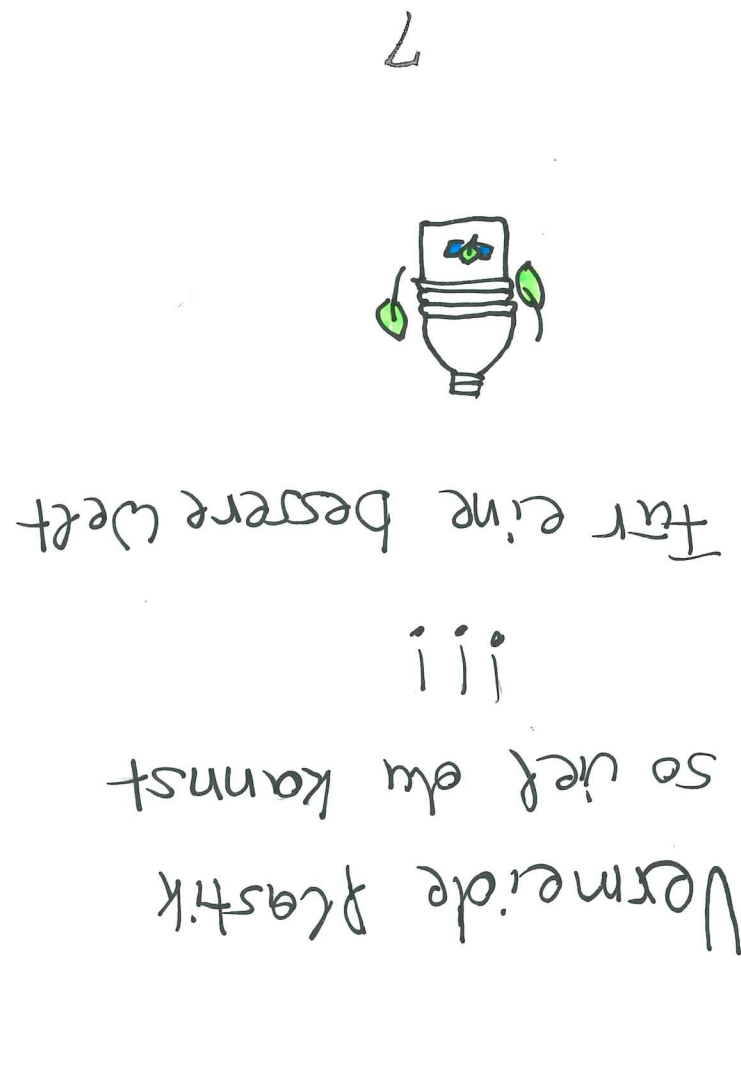 Vermeide Plastik
so viel du kannst
!!!
Für eine bessere Welt
7